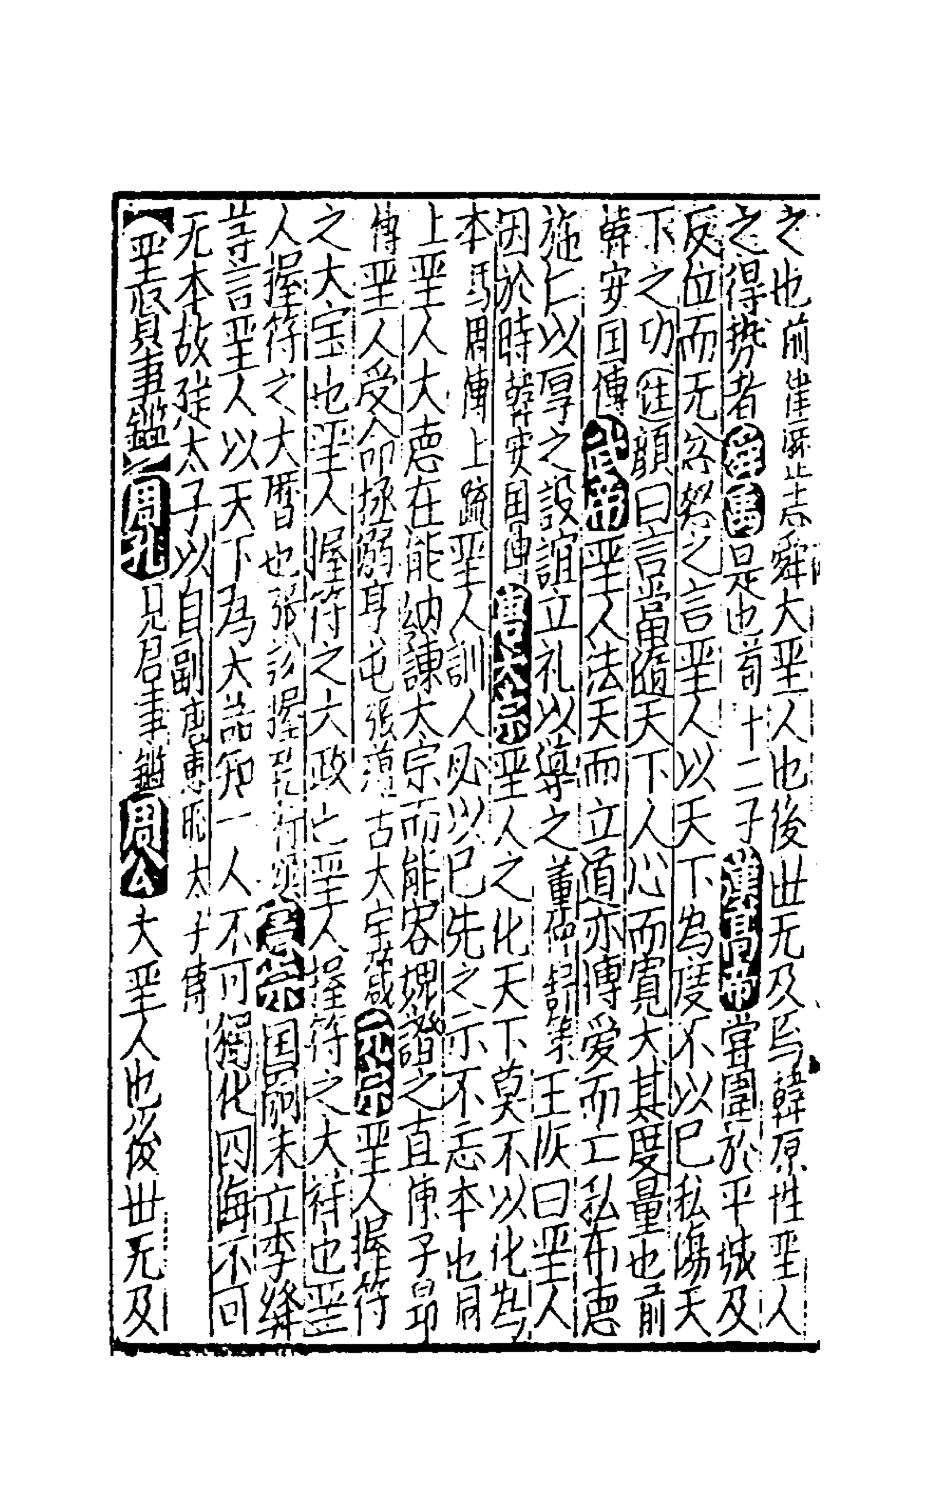 之也前崔寔止志舜大聖人也後世无及焉韓原性聖人
之得势者舜禹是也荀十二子漢高帝嘗圍於平城及
反位而无忿怒之言聖人以天下為度不以已私傷天
下之功往顔曰言當随天下人心而寛大其度量也前
韓安国傳武帝聖人法天而立道亦溥爱而亡私布恴
施仁以厚之設誼立礼以導之董仲舒策王恢曰聖人
因於時韓安国傳唐太宗聖人之化天下莫不以化為
本馬周傳上疏聖人訓人必以已先之示不忘本也周
上聖人大恴在能納諌太宗而能容媿證之直陳子昂
傳聖人受命拯溺耳屯張蕴古大宝葴元宗聖人握符
之大宝也聖人握符之六政也聖人握符之大祥也聖
人握符之大暦也張説握乳行憲宗国嗣未立李絳
等言聖人以天下為大器知一人不可獨化四海不可
无本故建太子以自副唐惠昭太子傳
聖贤事鑑周孔見君事鑑周公大聖人也後世无及